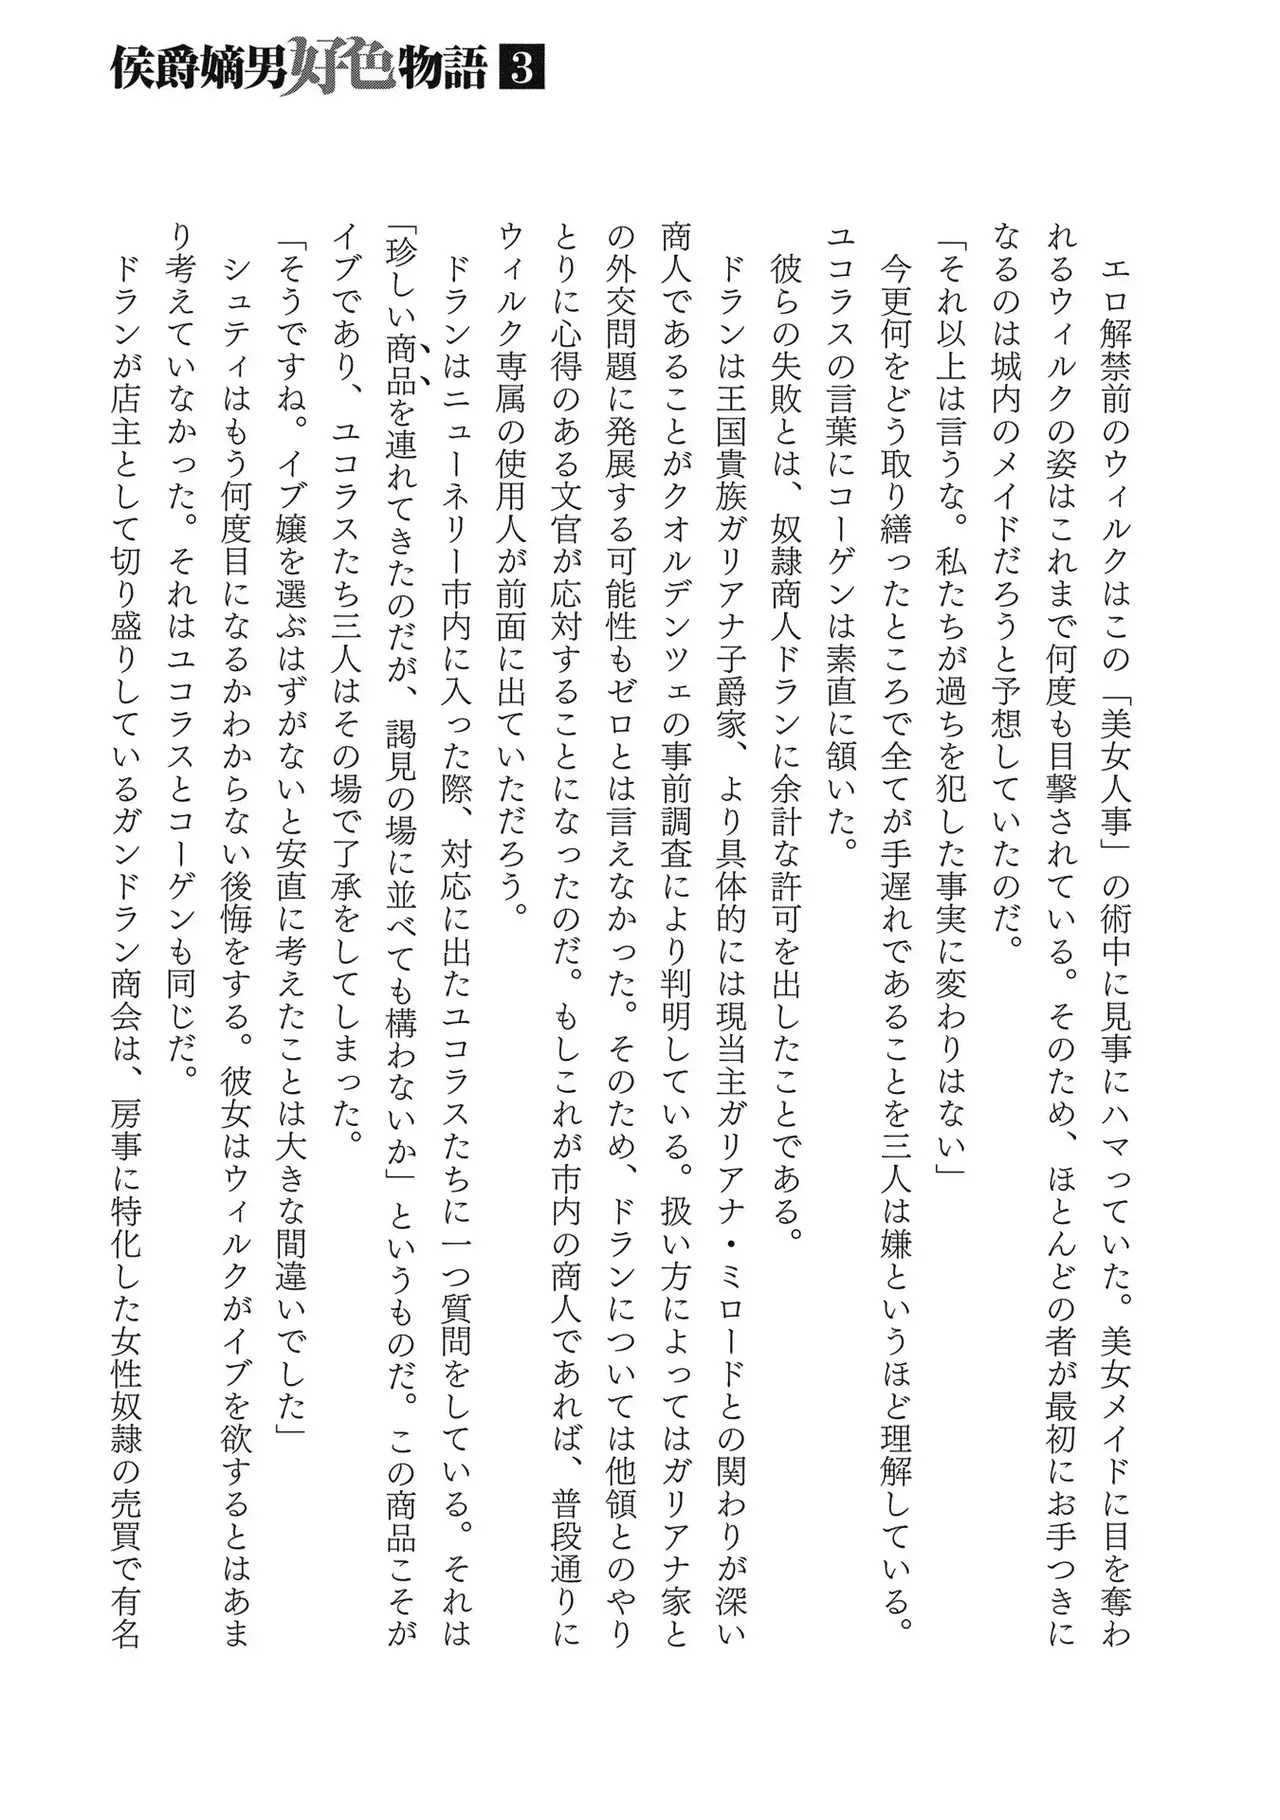 侯爵嫡男好色物語 3
　エロ解禁前のウィルクはこの「美女人事」の術中に見事にハマっていた。美女メイドに目を奪わ
れるウィルクの姿はこれまで何度も目撃されている。そのため、ほとんどの者が最初にお手つきに
なるのは城内のメイドだろうと予想していたのだ。
「それ以上は言うな。私たちが過ちを犯した事実に変わりはない」
　今更何をどう取り繕ったところで全てが手遅れであることを三人は嫌というほど理解している。
ユコラスの言葉にコーゲンは素直に頷いた。
　彼らの失敗とは、奴隷商人ドランに余計な許可を出したことである。
　ドランは王国貴族ガリアナ子爵家、より具体的には現当主ガリアナ・ミロードとの関わりが深い
商人であることがクオルデンツェの事前調査により判明している。扱い方によってはガリアナ家と
の外交問題に発展する可能性もゼロとは言えなかった。そのため、ドランについては他領とのやり
とりに心得のある文官が応対することになったのだ。もしこれが市内の商人であれば、普段通りに
ウィルク専属の使用人が前面に出ていただろう。
　ドランはニューネリー市内に入った際、対応に出たユコラスたちに一つ質問をしている。それは
「珍しい商品を連れてきたのだが、謁見の場に並べても構わないか」というものだ。この商品こそが
イブであり、ユコラスたち三人はその場で了承をしてしまった。
「そうですね。イブ嬢を選ぶはずがないと安直に考えたことは大きな間違いでした」
　シュティはもう何度目になるかわからない後悔をする。彼女はウィルクがイブを欲するとはあま
り考えていなかった。それはユコラスとコーゲンも同じだ。
　ドランが店主として切り盛りしているガンドラン商会は、房事に特化した女性奴隷の売買で有名